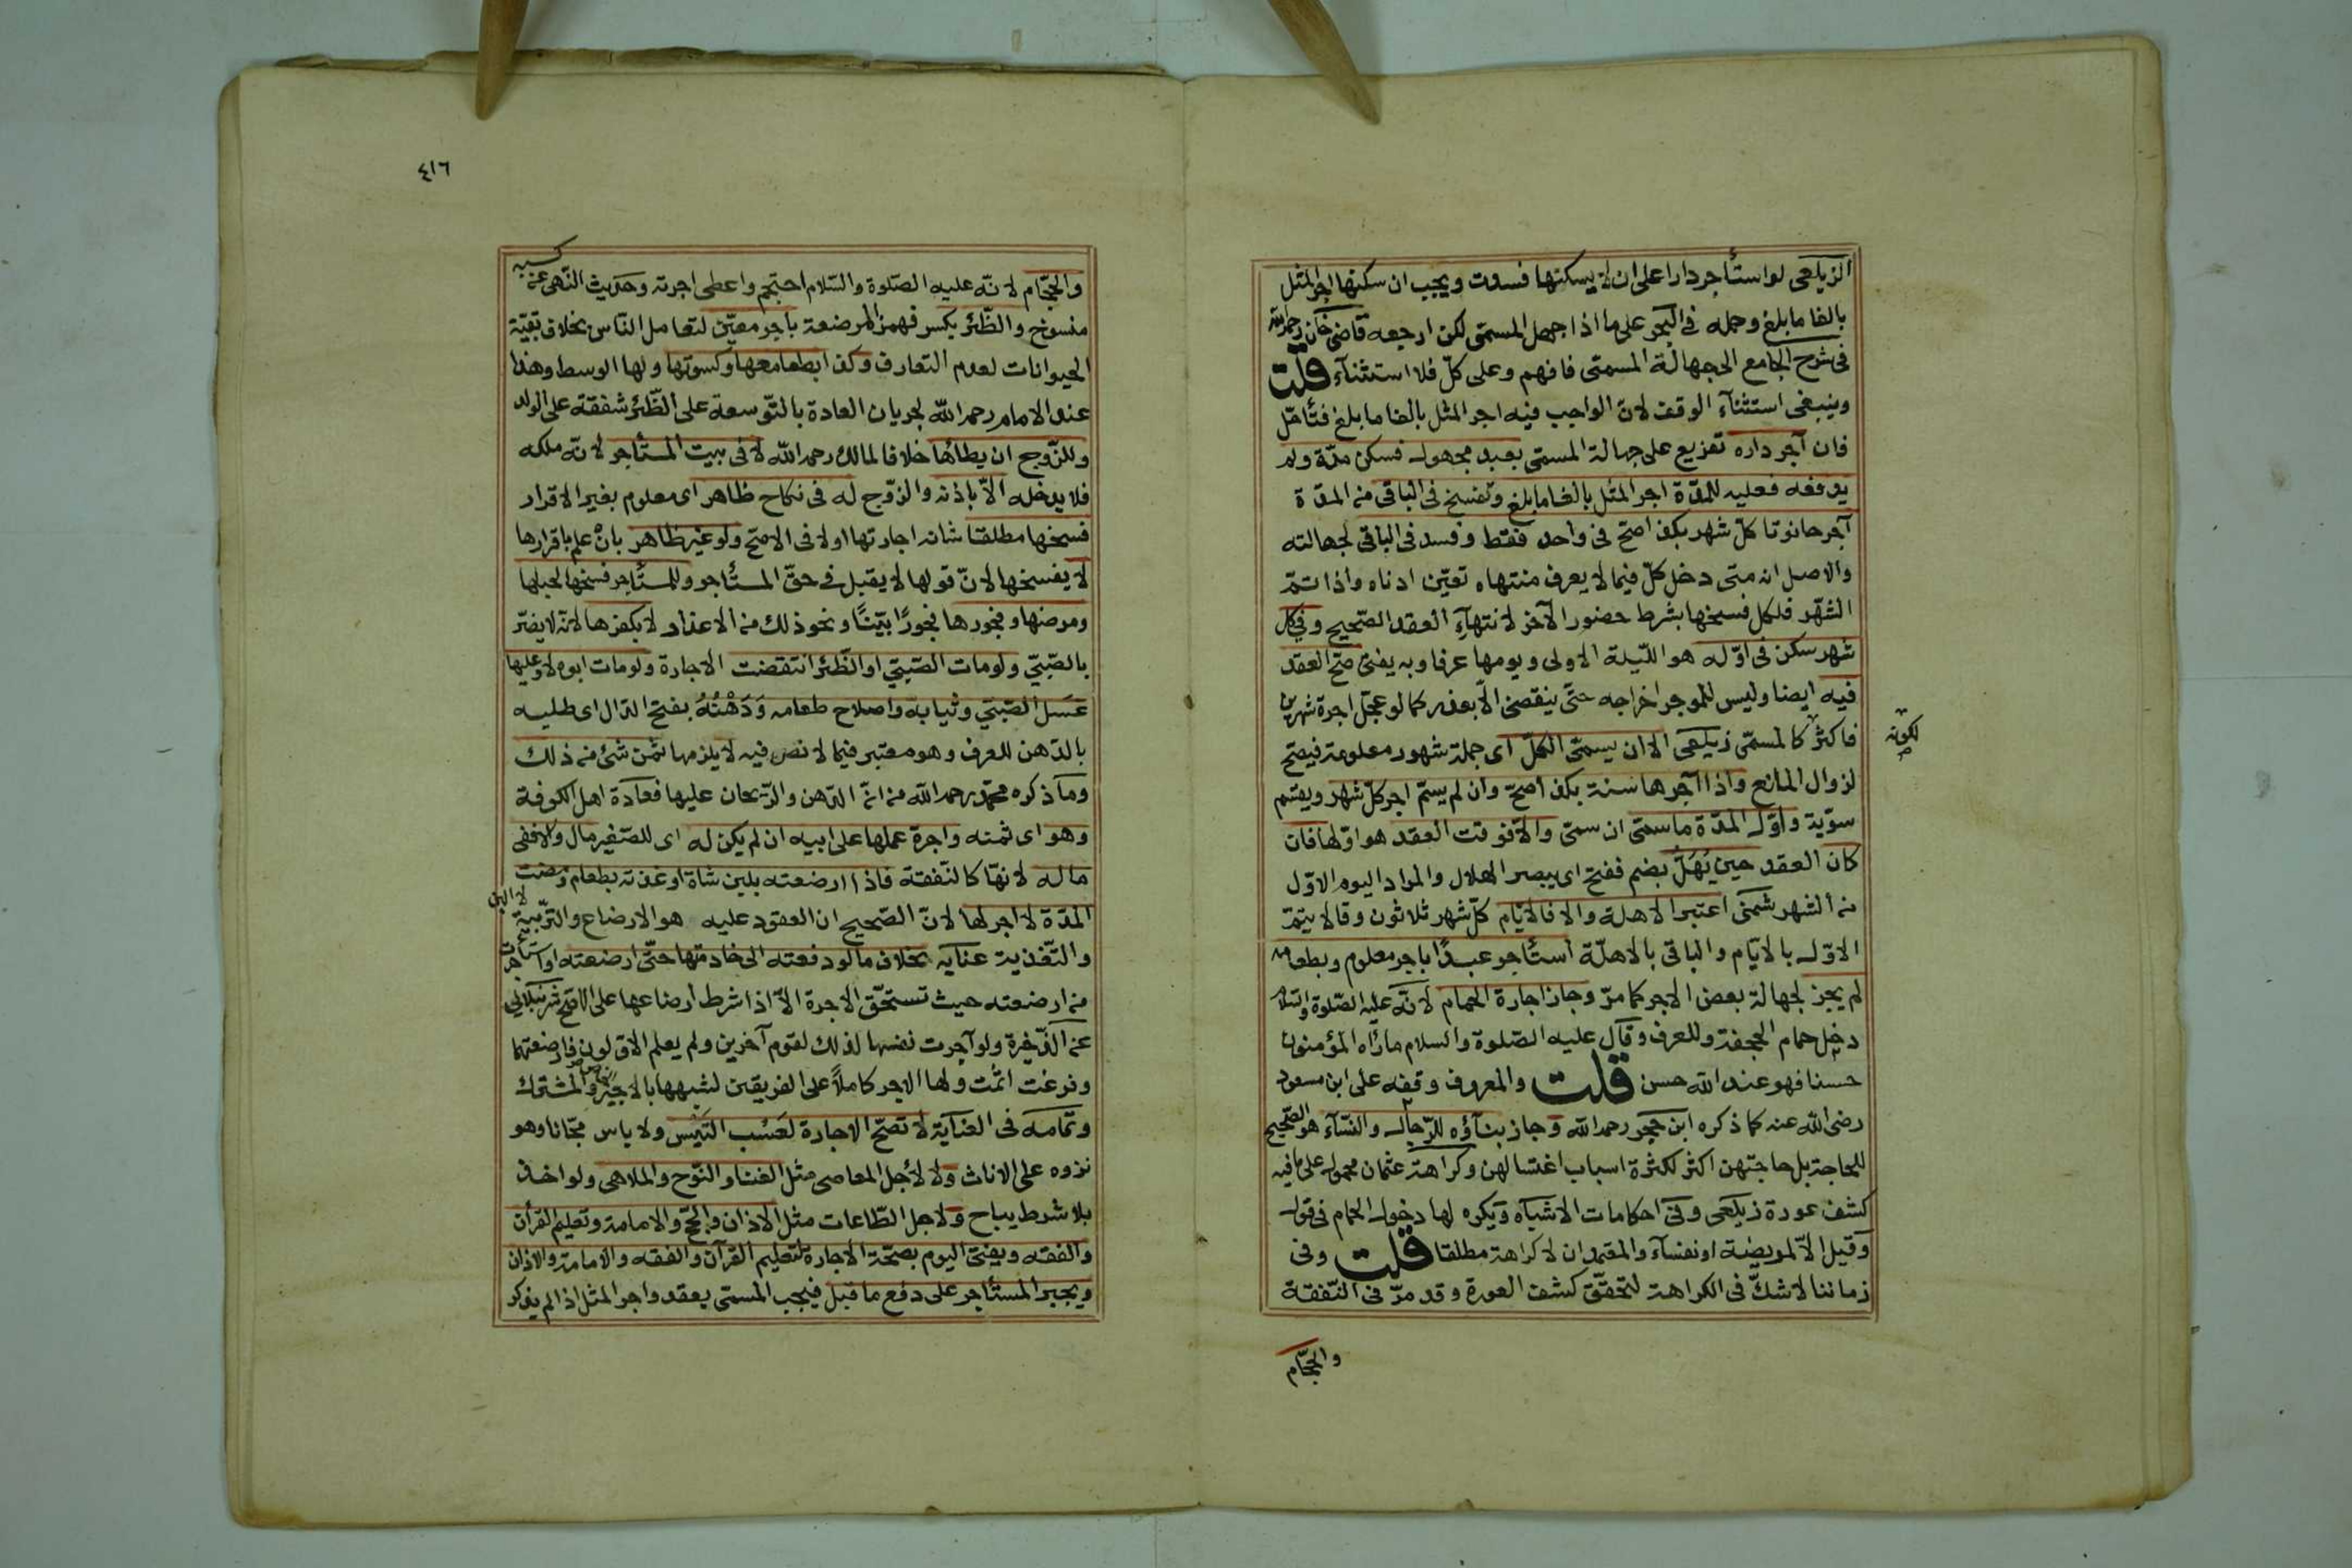 الزيلعى لو استأجر دارا على ان لا يسكنها فسدت ويجب ان سكنها اجر المثل
بالغا ما بلغ وحمله فى البحر على ما اذا جهل المسمى لكن ارجعه قاضى خان رحمه الله
فى شرح الجامع الى جهالة المسمى فافهم وعلى كلّ فلا استثنآء قلت
وينبغى استثنآء الوقف لانّ الواجب فيه اجر المثل بالغا ما بلغ فتأمّل
فان آجر داره تفريع على جهالة المسمى بعبد مجهول فسكن مدّة ولم
يدفعه فعليه للمدّة اجر المثل بالغا ما بلغ وتفسخ فى الباقى من المدّة
آجر حانوتا كلّ شهر بكذا صحّ فى واحد فقط وفسد فى الباقى لجهالته
والاصل انه متى دخل كلّ فيما لا يعرف منتهاه تعيّن ادناه واذا تمّ
الشّهر فلكل فسخها بشرط حضور الآخر لانتهآء العقد الصّحيح وفى كل
شهر سكن فى اوّله هو اللّيلة الاولى ويومها عرفا وبه يفتى صحّ العقد
فيه ايضا وليس للموجر اخراجه حتّى ينقضى الّا بعذر كما لو عجّل اجرة شهرين
فاكثر كالمسمّى زيلعى الا ان يسمّى الكلّ اى جملة شهور معلومة فيصحّ
لكونه
لزوال المانع واذا آجرها سنة بكذا صحّ وان لم يسمّ اجر كلّ شهر ويقسم
سوّية واوّل المدّة ما سمّى ان سمّى والّا فوقت العقد هو اوّلها فان
كان العقد حين يُهَلّ بضم ففتح اى يبصر الهلال والمراد اليوم الاوّل
من الشهر شمنى اعتبر الاهلة والا فالايّام كلّ شهر ثلاثون وقالا يتمّ
الاوّل بالايّام والباقى بالاهلّة استأجر عبدًا باجر معلوم وبطعامه
لم يجز لجهالة بعض الاجر كما مرّ وجاز اجارة الحمام لانّه عليه الصّلوة والسّلام
دخل حمام الجحفة وللعرف وقال عليه الصّلوة والسلام ما رآه المؤمنون
حسنا فهو عند الله حسن قلت والمعروف وقفه على ابن مسعود
رضى الله عنه كما ذكره ابن حجر رحمه الله وجاز بنآؤه للرّجال والنّسآء هو الصّحيح
للحاجة بل حاجتهن اكثر لكثرة اسباب اغتسالهن وكراهة عثمان محمول على ما فيه
كشف عورة زيلعى وفى احكامات الاشباه ويكره لها دخول الحمام فى قول
وقيل الّا لمريضة او نفسآء والمعتمد ان لا كراهة مطلقا قلت وفى
زماننا لا شكّ فى الكراهة لتحقّق كشف العورة وقد مرّ فى النّفقة
والحجّام
٤١٦
والحجّام لانّه عليه الصّلوة والسّلام احتجم واعطى اجرته وحديث النّهى عن كسبه
منسوخ والظّئر بكسر فهمز المرضعة باجر معيّن لتعامل النّاس بخلاف بقيّة
الحيوانات لعدم التعارف وكذا بطعامها وكسوتها ولها الوسط وهذا
عند الامام رحمه الله لجريان العادة بالتّوسعة على الظّئر شفقة على الولد
وللزّوج ان يطأها خلافا لمالك رحمه الله لا فى بيت المستأجر لانّه ملكه
فلا يدخله الّا باذنه والزّوج له فى نكاح ظاهر اى معلوم بغير الاقرار
فسخها مطلقا شانه اجارتها اولا فى الاصحّ ولو غير ظاهر بان علم باقرارها
لا يفسخها لانّ قولها لا يقبل فى حقّ المستأجر وللمستأجر فسخها لحبلها
ومرضها وفجورها فجورًا بيّنًا ونحو ذلك من الاعذار لا بكفرها لانّه لا يضرّ
بالصّبىّ ولو مات الصّبىّ او الظّئر انتقضت الاجارة ولو مات ابوه لا وعليها
غسل الصّبىّ وثيابه واصلاح طعامه وَدَهْنُهُ بفتح الدّال اى طليه
بالدّهن للعرف وهو معتبر فيما لا نص فيه لا يلزمها ثمن شئ من ذلك
وما ذكره محمّد رحمه الله من انّ الدّهن والرّيحان عليها فعادة اهل الكوفة
وهو اى ثمنه واجرة عملها على ابيه ان لم يكن له اى للصّغير مال والا ففى
ماله لانّها كالنّفقة فاذا ارضعته بلبن شاة او غذته بطعام ومضت
المدّة لا اجر لها لانّ الصّحيح ان المعقود عليه هو الارضاع والتّربية لا اللبن
والتّغذية عنايه بخلاف ما لو دفعته الى خادمتها حتّى ارضعته او استأجرت
من ارضعته حيث تستحقّ الاجرة الّا اذا شرط ارضاعها على الاصحّ شرنبلالى
عن الذّخيرة ولو آجرت نفسها لذلك لقوم آخرين ولم يعلم الاوّلون فارضعتهما
وفرغت اثمت ولها الاجر كاملًا على الفريقين لشبهها بالاجير الخاص والمشترك
وتمامه فى العناية لا تصحّ الاجارة لعَسْب التّيس ولا باس مجّانا وهو
نزوه على الاناث ولا لأجل المعاصى مثل الغنا والنّوح والملاهى ولو اخذ
بلا شرط يباح ولا جل الطّاعات مثل الاذان والحجّ والامامة وتعليم القرأن
والفقه ويفتى اليوم بصحّة الاجارة لتعليم القرآن والفقه والامامة والاذان
ويجبر المستأجر على دفع ما قبل فيجب المسمى بعقد واجر المثل اذا لم يذكر